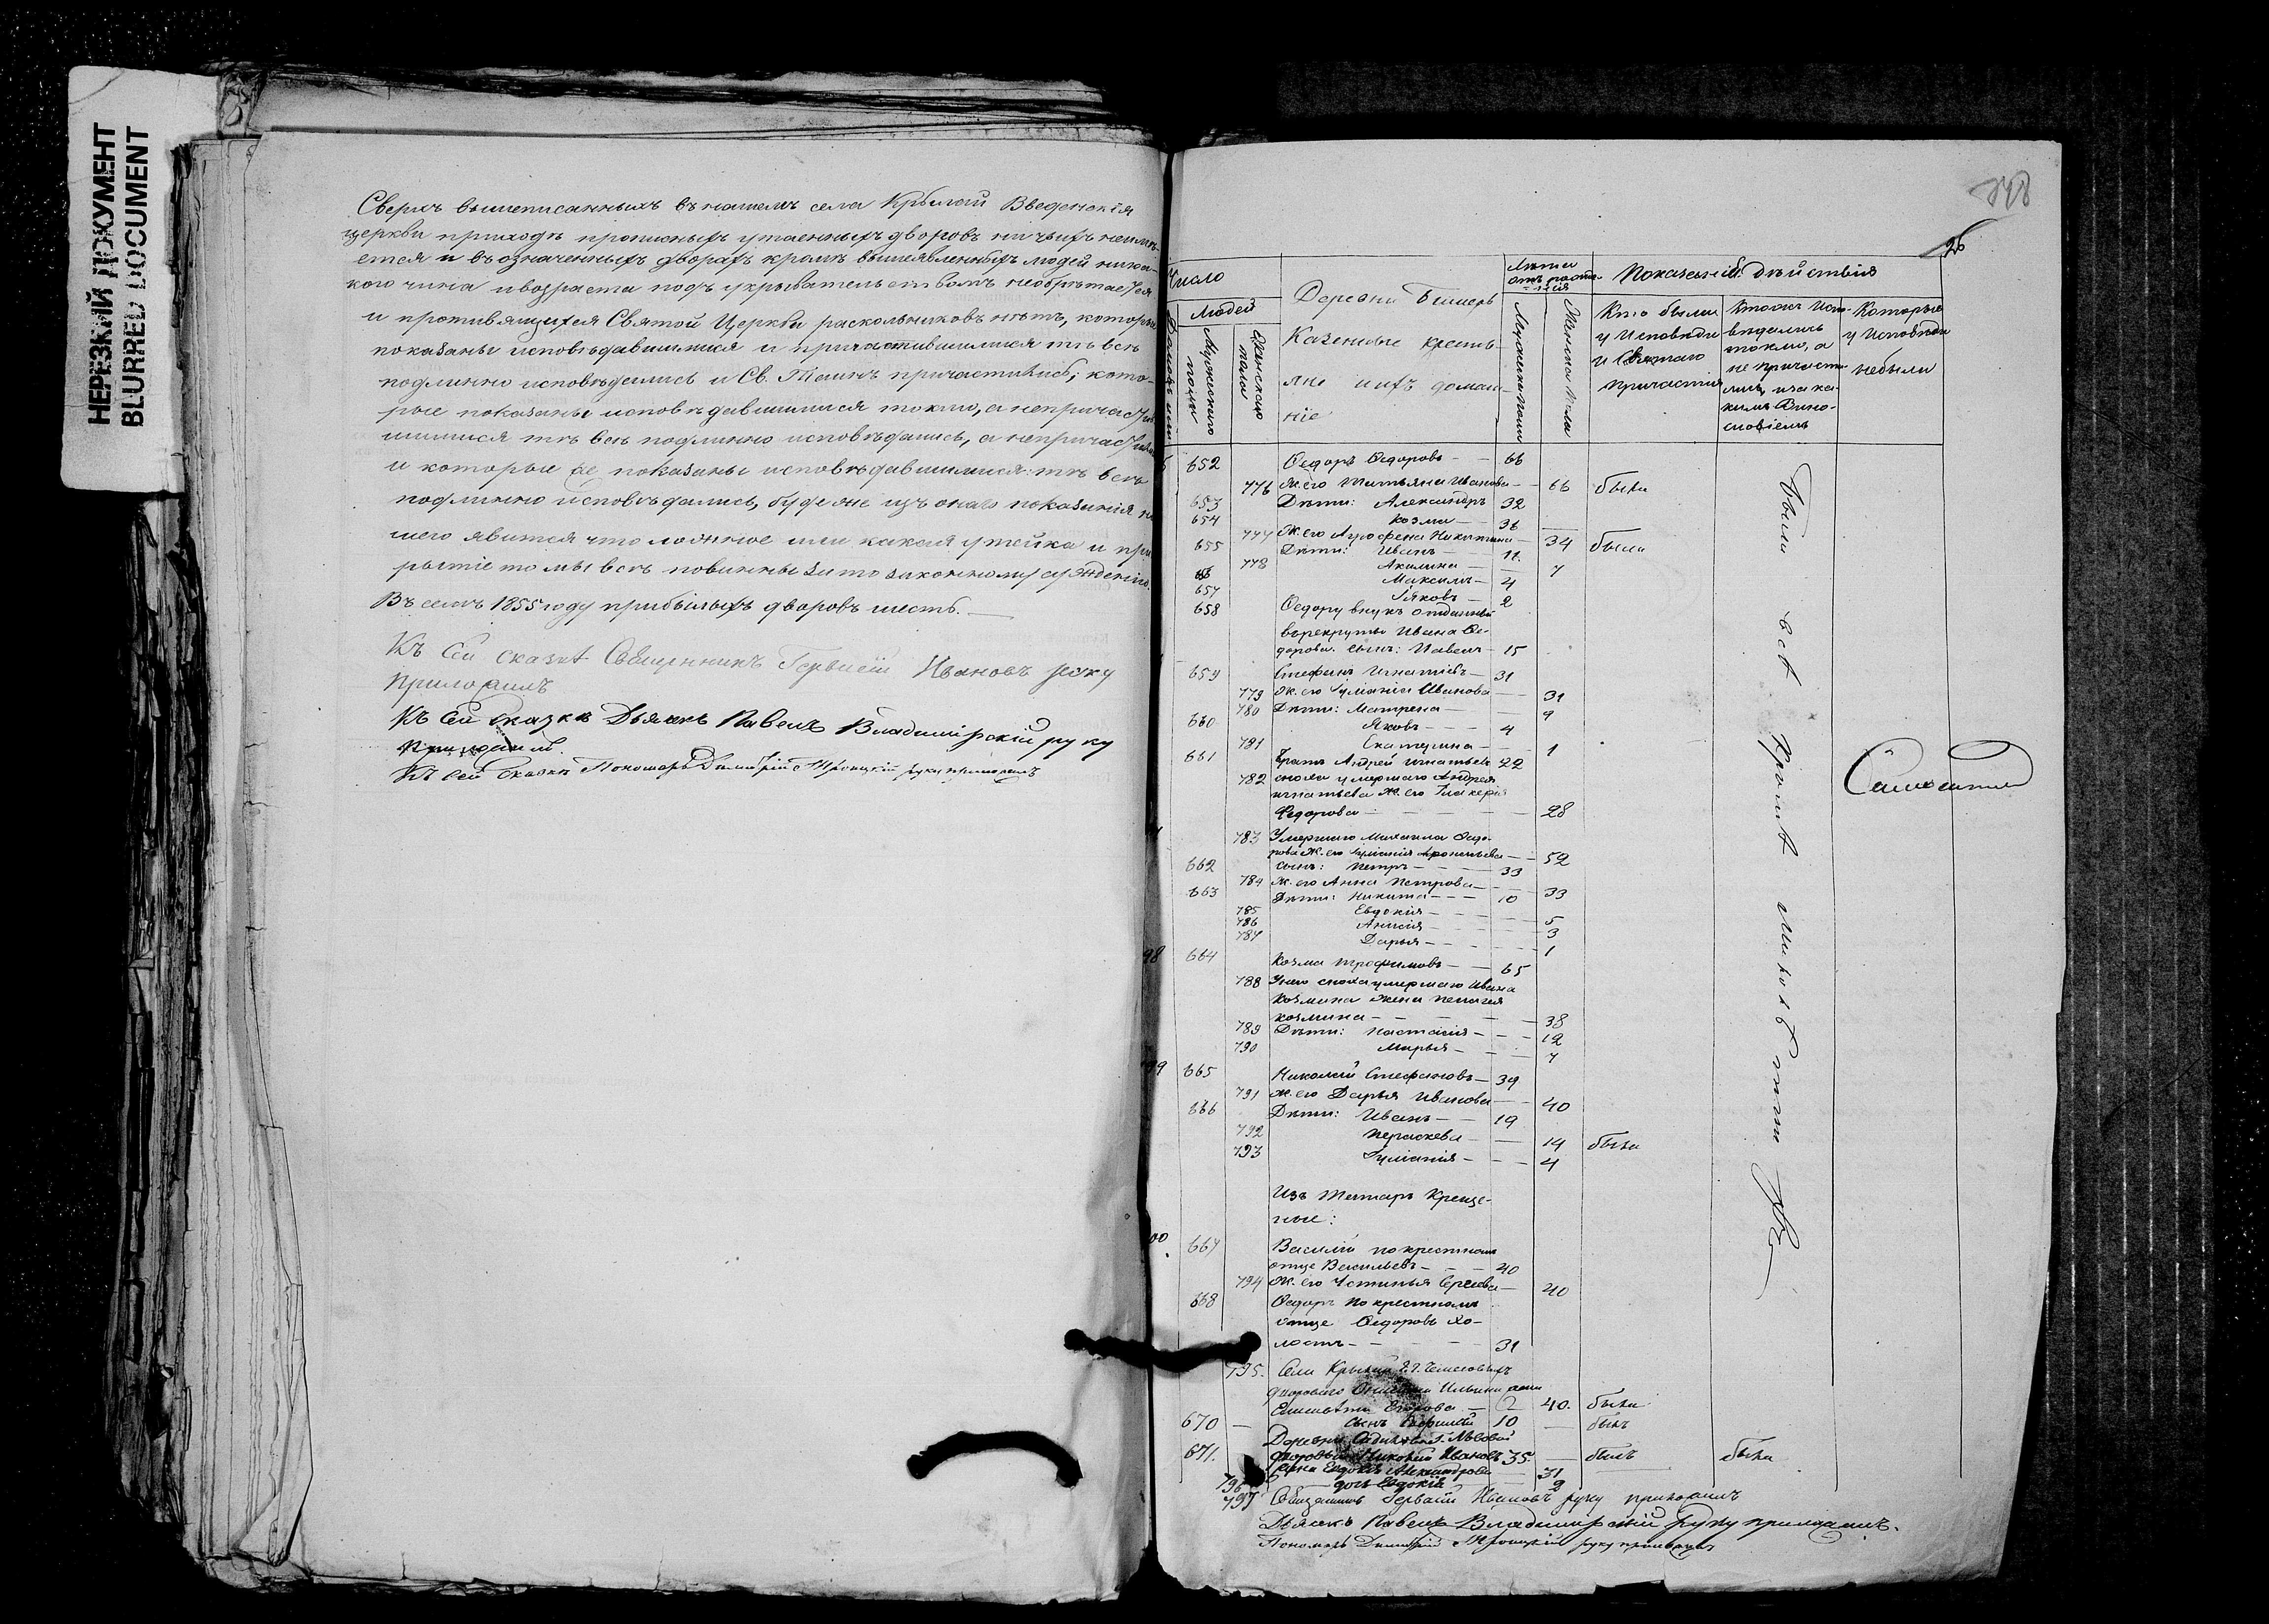 НЕРЕЗКИЙ ДОКУМЕНТ
BLURRED DOCUMENT
Сверхъ вышеписанныхъ въ нашемъ села Крылай Введенскія
церкви приходѣ прописныхъ утаенныхъ дворовъ ни чьихъ неимѣ-
ется и въ означенныхъ дворахъ кромѣ вышеявленныхъ людей ника-
кого чина и возраста подъ укрывательствомъ необрѣтается
и противящихся Святой Церкви раскольниковъ нѣтъ, которы
показаны исповѣдавшимися и причастившимися тѣ всѣ
подлинно исповѣдались и Св. Таинъ причастились; кото-
рые показаны исповѣдавшимися токмо, а непричастив
шимися тѣ всѣ подлинно исповѣдались, а непричастили
и которые не показаны исповѣдавшимися тѣ всѣ
подлинно исповѣдались, буде же изъ онаго показанія на
шего явится что ложное или какая утайка и при
рытіе то мы всѣ повинны за то законному сужденію.
Въ семъ 1855 году прибылыхъ дворовъ шесть.
Къ сей сказкѣ Священникъ Гервасій Ивановъ руку
приложилъ
Къ сей сказкѣ Дьячекъ Павелъ Владимірскій руку
приложилъ.
Къ сей сказкѣ Пономарь Димитрій Троицкій руку приложилъ
26
Число
Людей
Мужескаго пола
Женскаго пола
Деревни
Казенные кресть-
яне ихъ домаш-
ніе
Лѣта
отъ рожде-
нія
Мужеска пола
Женска пола
Показаніе дѣйствія
Кто были
у Исповѣди
и Святаго
причастія
Ктожъ Испо-
вѣдались
токмо, а
не причасти-
лись, и за ка-
кимъ Вино-
словіемъ
Которые
у Исповѣди
небыли
652 Ѳедоръ Ѳедоровъ 66
776 Ж. его Татьяна Иванова 66 была
653 Дѣти: Александръ 32
654 Козма 36
777 Ж. его Агрофена Никитина 34 была
655 Дѣти: Иванъ 11
778 Акилина 7
656 Максимъ 4
657 Яковъ 2
658 Ѳедору внукъ отданный
въ рекруты Ивана Ѳе-
дорова сынъ: Павелъ 15
659 Стефанъ Игнатьевъ 31
779 Ж. его Іуліанія Иванова 31
780 Дѣти: Матрена 9
660 Яковъ 4
781 Екатерина 1
661 Братъ Андрей Игнатьевъ 22
782 сноха умершаго Андрея
Игнатьева Ж. его Гликерія
Федорова 28
783 Умершаго Михаила Ѳедо-
рова Ж. его Іуліанія 52
662 Сынъ: Петръ 33
784 Ж. его Анна Петрова 33
663 Дѣти: Никита 10
785 Евдокія 5
786 Анисія 3
787 Дарья 1
98 664 Козма Трофимовъ 65
788 У него сноха умершаго Ивана
Козмина жена Пелагея
Козмина 38
789 Дѣти: Настасія 12
790 Марья 7
99 665 Николай Стефановъ 39
791 Ж. его Дарья Иванова 40
666 Дѣти: Иванъ 19
792 Перасковья 14 была
793 Іуліанія 4
Изъ Татаръ Креще-
ные:
00 667 Василій по крестномъ
отце Васильевъ 40
794 Ж. его Устинья Сергѣева 40
668 Ѳедоръ по крестномъ
отце Ѳедоровъ хо-
лостъ 31
были всѣ кромѣ
795. Села Крылай
двороваго Ильина жена
Елисавета Егорова 40. была
670 сынъ 10 былъ
Деревни
671. дворовый Николай Ивановъ 35. былъ
жена Евдокія Александрова 31
796 дочь Евдокія 9
797 Священникъ Гервасій Ивановъ руку приложилъ
Дьячекъ Павелъ Владимірскій руку приложилъ.
Пономарь Димитрій Троицкій руку приложилъ